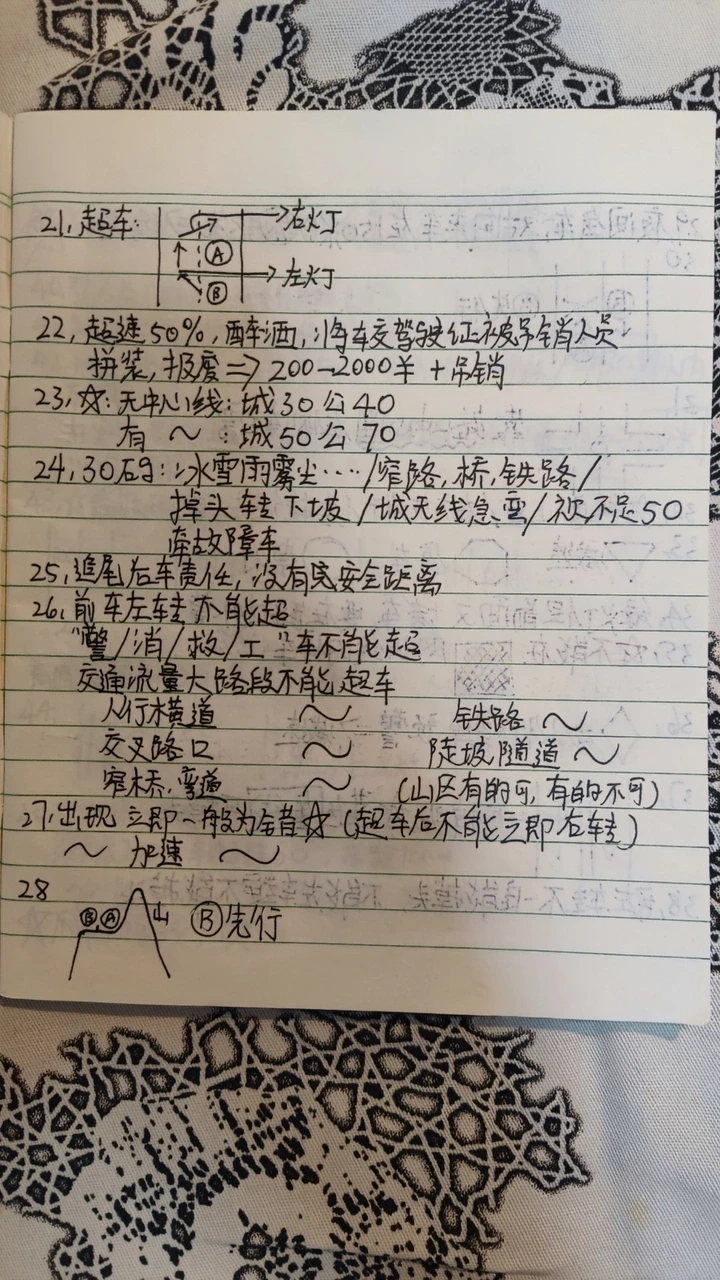 21, 超车: 右灯
A
左灯
B
22, 超速50%, 醉酒, 将车交驾驶证被吊销人员
拼装, 报废 => 200-2000￥ + 吊销
23, ☆: 无中心线: 城30 公40
有 ~ : 城50 公70
24, 30码: 冰雪雨雾尘…/窄路, 桥, 铁路/
掉头 转 下坡 /城无线急弯/ 不足50
牵故障车
25, 追尾后车责任, 没有 安全距离
26, 前车左转不能超
"警/消/救/工" 车不能超
交通流量大路段不能超车
人行横道 ~ 铁路 ~
交叉路口 ~ 陡坡, 隧道 ~
窄桥, 弯道 ~ (山区有的可, 有的不可)
27, 出现 立即一般为错 ☆ (超车后不能立即右转)
~ 加速 ~
28
B A 山 B先行